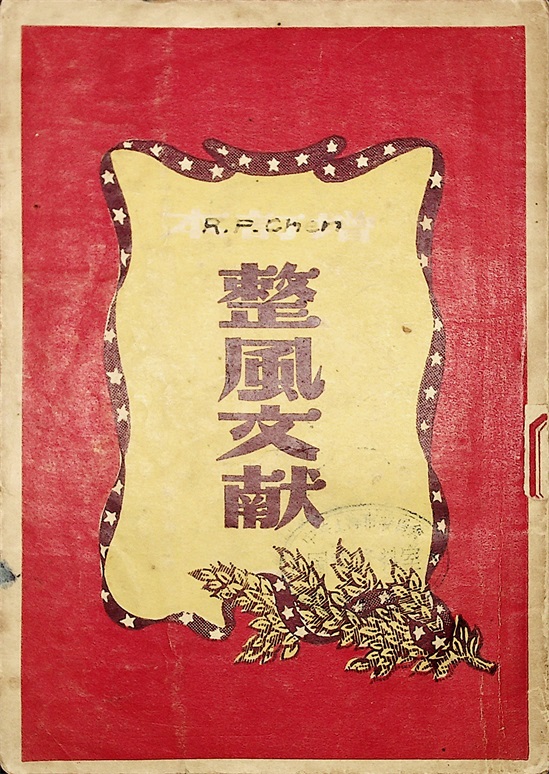 R. P. Chen
整風文献